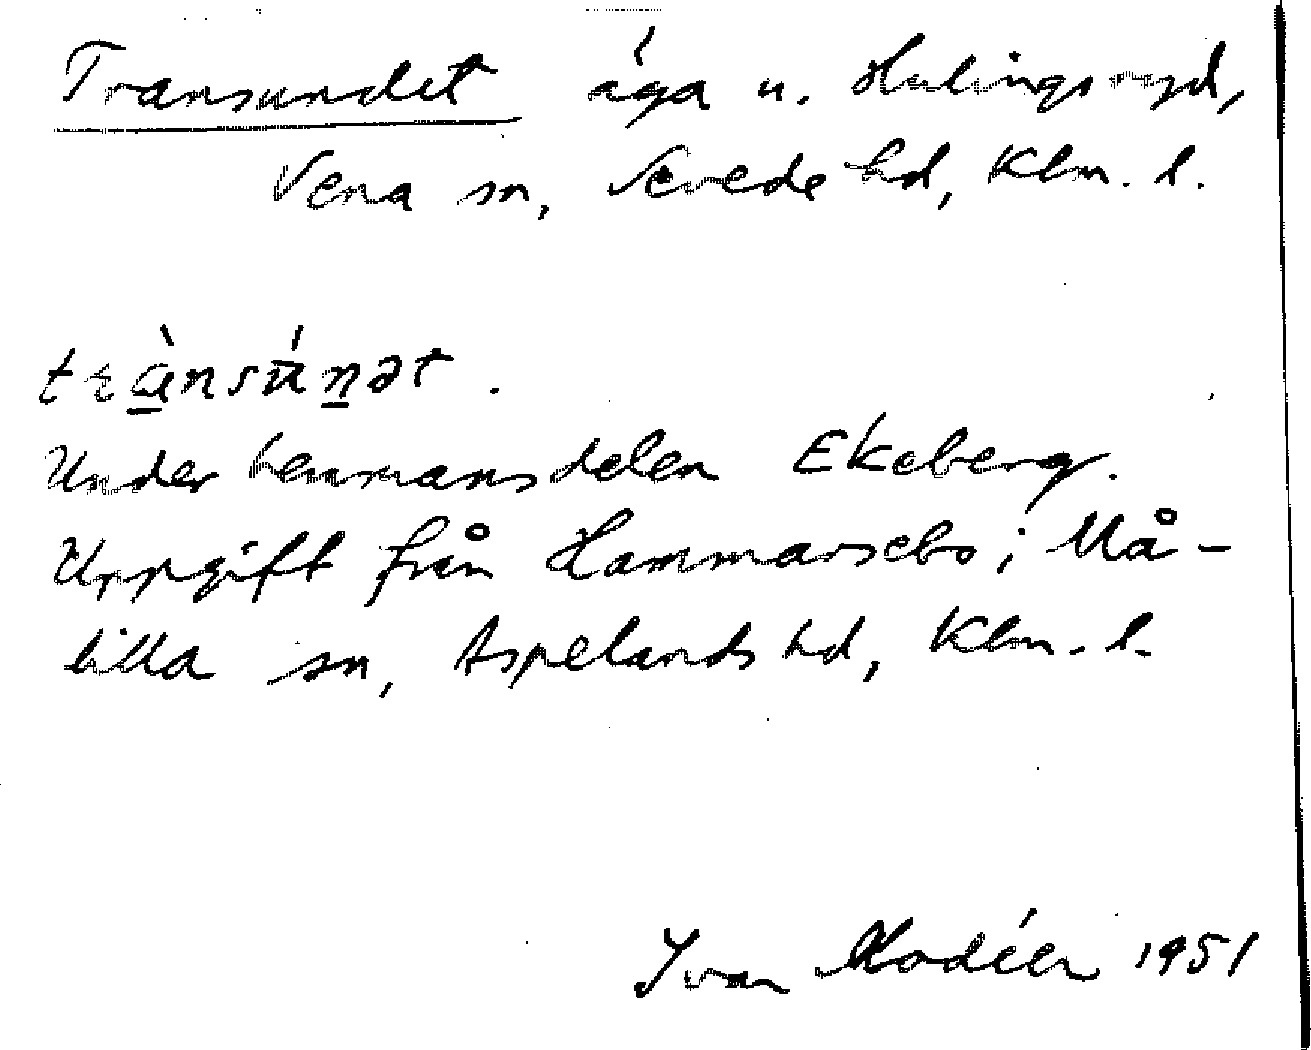 Transundet äga u. Hulingsryd,
Vena sn, Sevede hd, Klm. l.
trànsúnət.
Under hemmansdelen Ekeberg.
Uppgift från Hammarsebo i Må-
lilla sn, Aspelands hd, Klm. l.
Ivar Modéer 1951